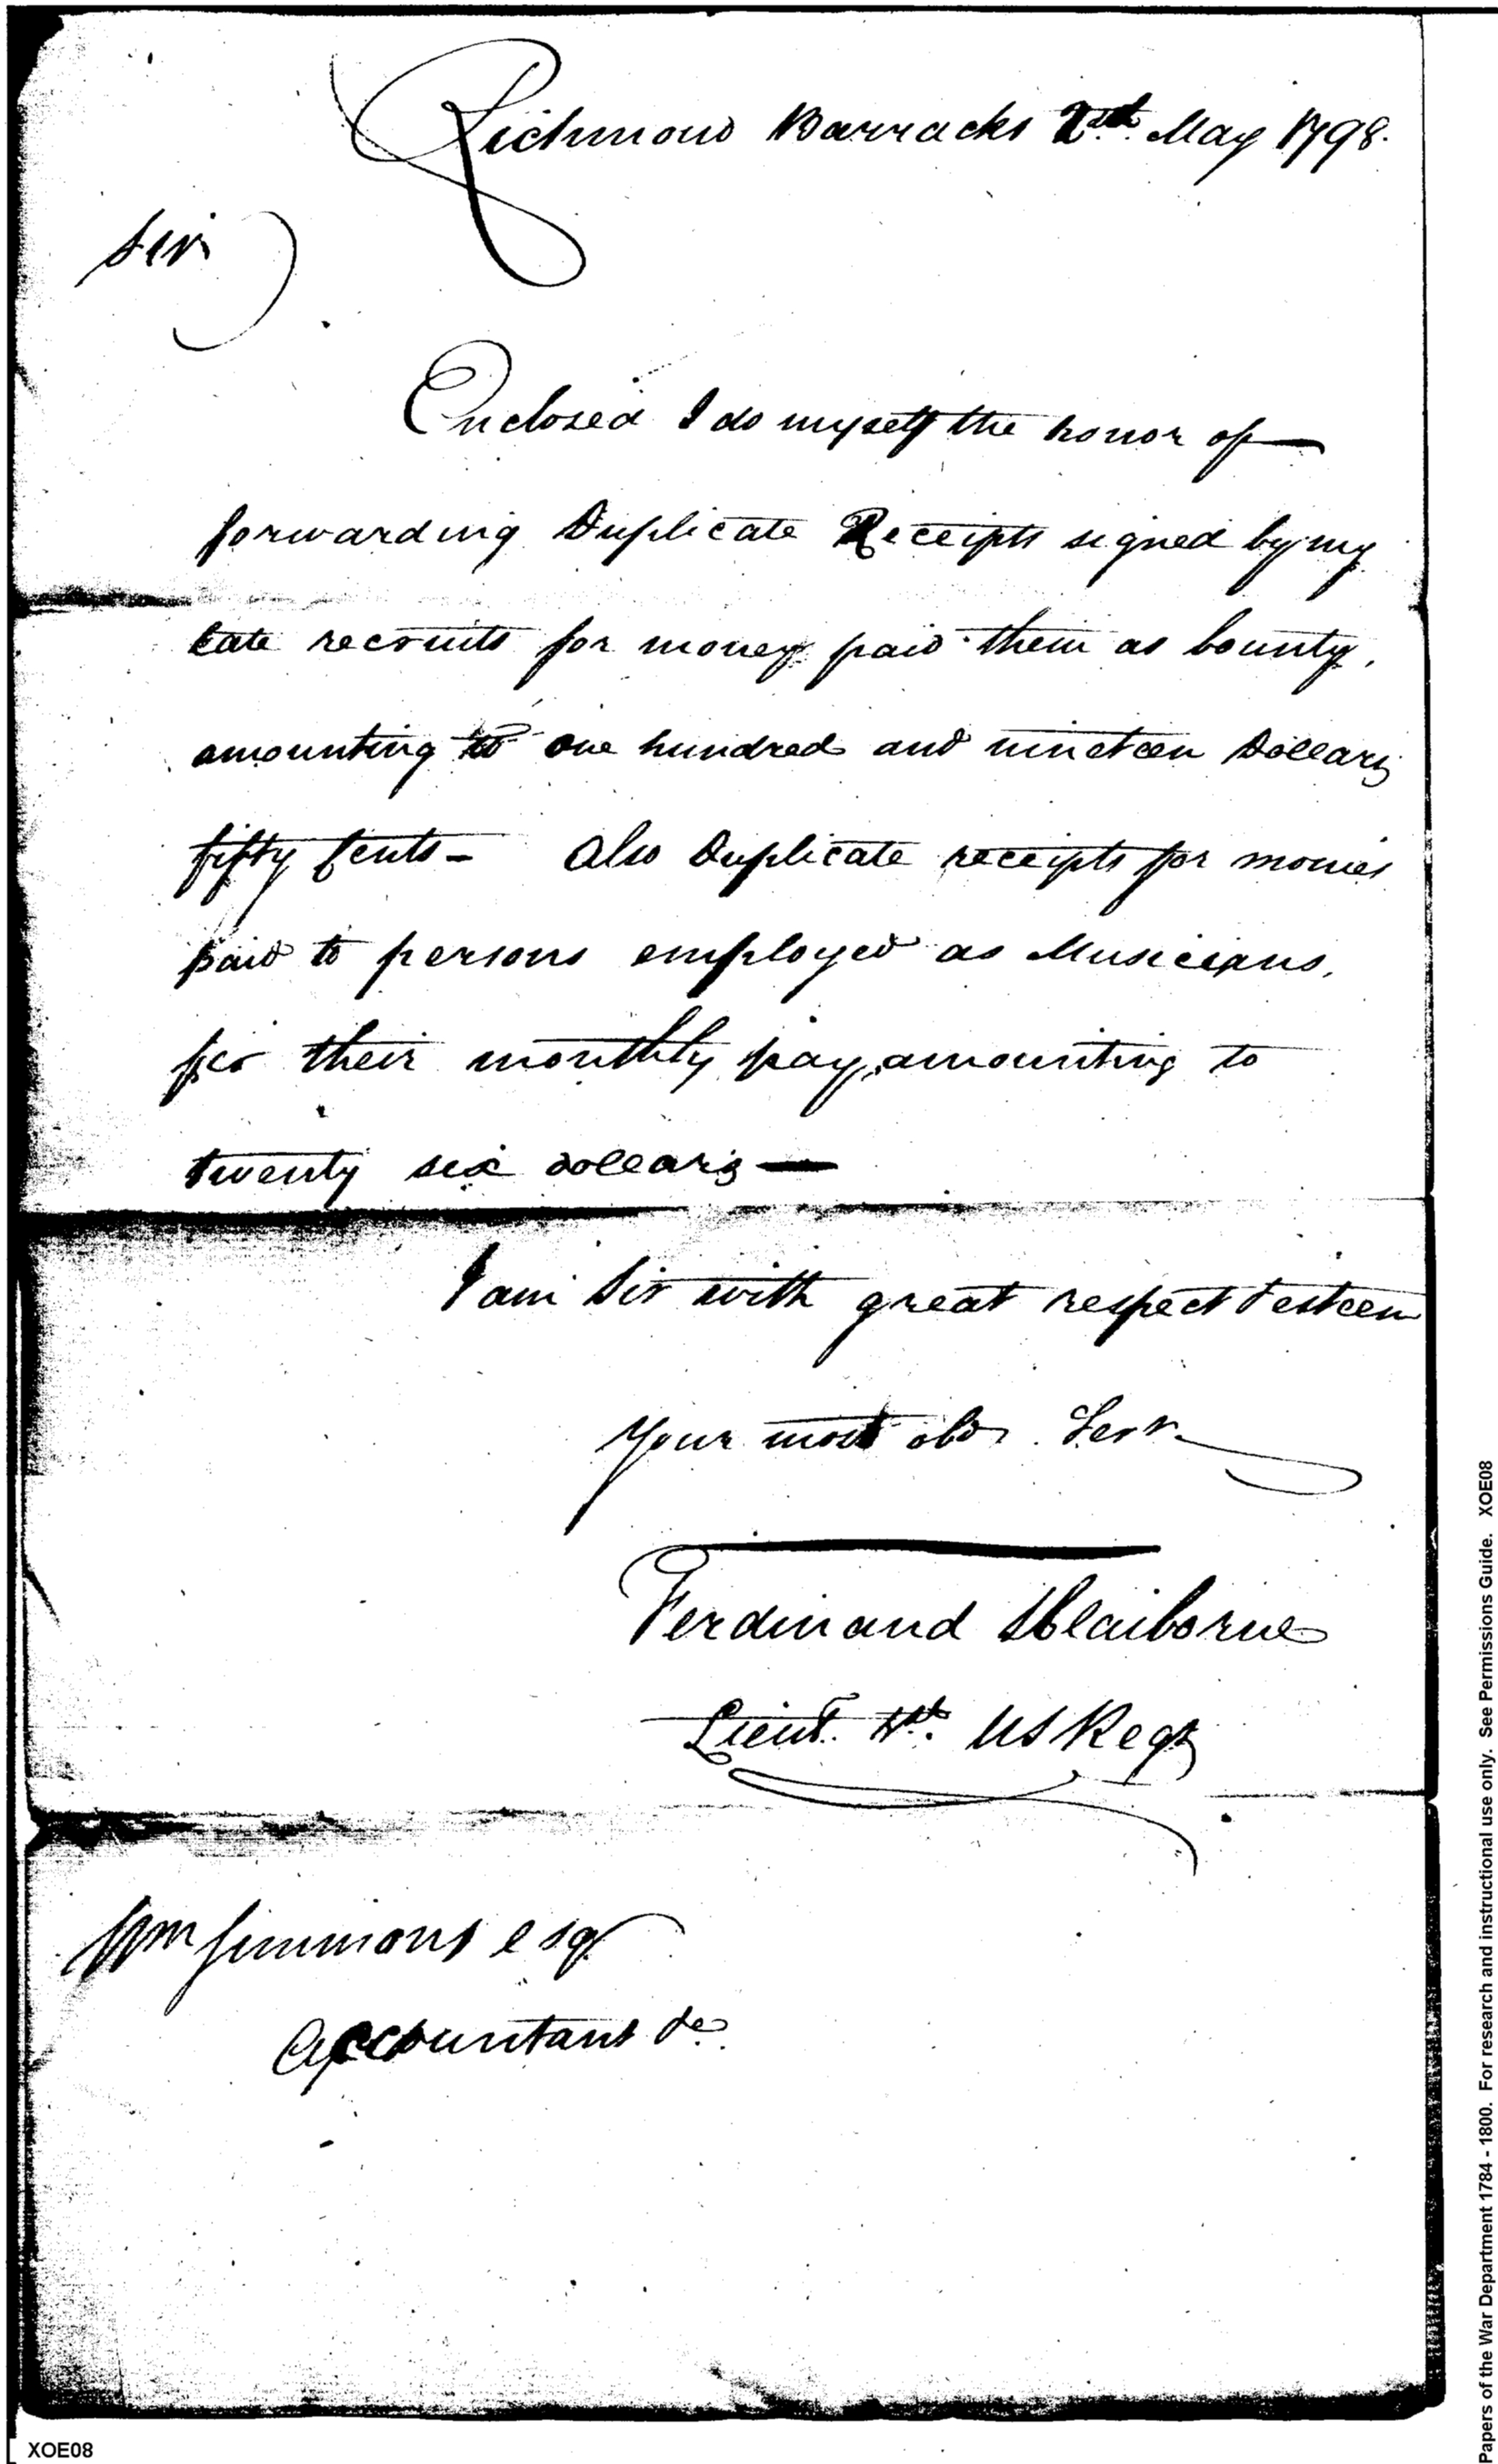 Richmond Barracks 2nd May 1798.
Sir
Enclosed I do myself the honor of
forwarding Duplicate Receipts signed by my
late recruits for money paid them as bounty,
amounting to one hundred and nineteen Dollars
fifty Cents - Also Duplicate receipts for monies
paid to persons employed as Musicians,
for their monthly pay, amounting to
twenty six dollars —
I am Sir with great respect & esteem
Your most obt. Servt.
Ferdinand Claiborne
Lieut. 4th. US Regt
Wm Simmons esqr
Accountant &c.
XOE08
Papers of the War Department 1784 - 1800. For research and instructional use only. See Permissions Guide. XOE08